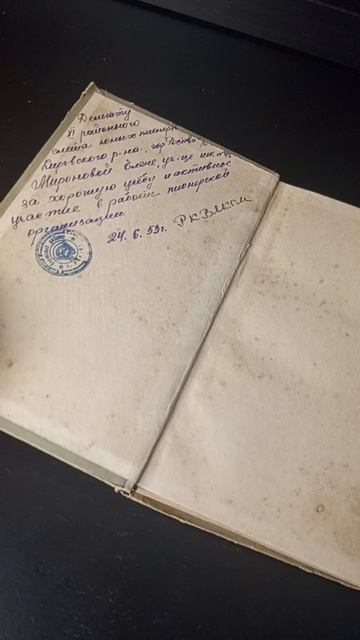 Делегату
XI районного
слёта юных пионеров
Кировского р-на. гор. Ростова
Мироновой Елене, уч-це шк.
за хорошую учёбу и активное
участие в работе пионерской
организации
24. 6. 53г. РК ВЛКСМ